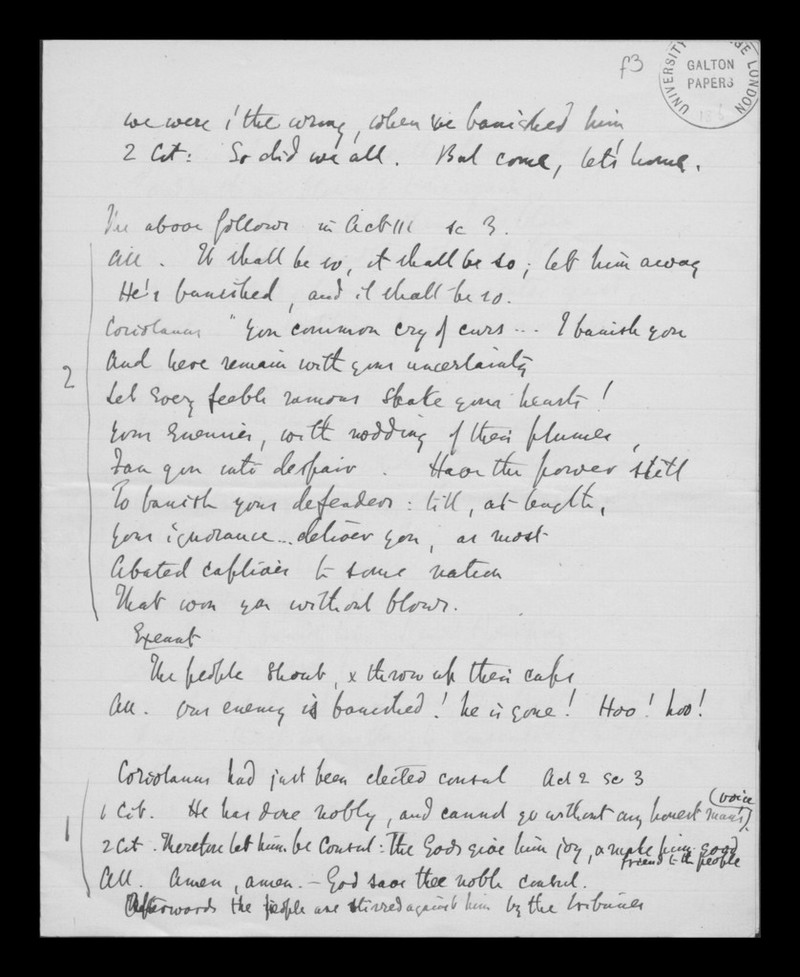 f3
UNIVERSITY GE LONDON
GALTON
PAPERS
we were i' the wrong, when we banished him
2 Cit: So did we all. But come, let's home.
The above follows in Act III sc 3.
All. It shall be so, it shall be so; let him away
He's banished, and it shall be so.
Coriolanus "You common cry of curs ... I banish you
And here remain with your uncertainty
2
Let every feeble rumour shake your hearts!
Your Enemies, with nodding of their plumes,
Fan you into despair. Have the power still
To banish your defenders: till, at length,
your ignorance... deliver you, as most
Abated captives to some nation
That won you without blows.
Exeunt
The people shout, & throw up their caps
All. Our enemy is banished! he is gone! Hoo! hoo!
Coriolanus had just been elected consul Act 2 sc 3
1 Cit. He has done nobly, and cannot go without any honest man's (voice).
1
2 Cit. Therefore let him be Consul: the Gods give him joy, & make him good
friend to the people
All. Amen, amen. – God save thee noble consul.
Afterwards the people are stirred against him by the tribunes